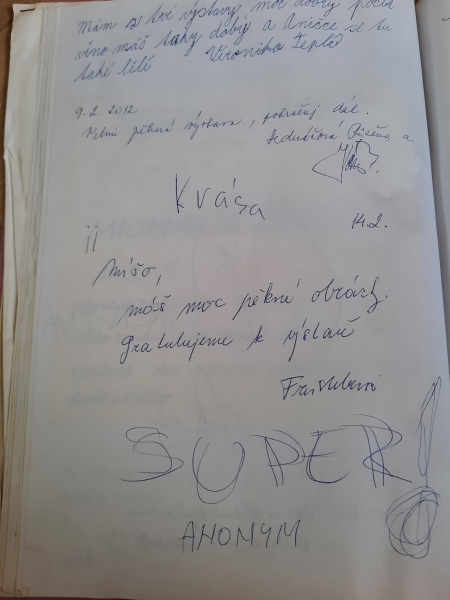 Mám z tvé výstavy moc dobrý pocit
víno máš taky dobrý a Aničce se tu
také líbí Veronika Teplá
9.2.2012
Velmi pěkná výstava, pokračuj dál.
a
Krása
14.2.
Míšo,
máš moc pěkné obrázky.
Gratulujeme k výstavě
SUPER!
ANONYM